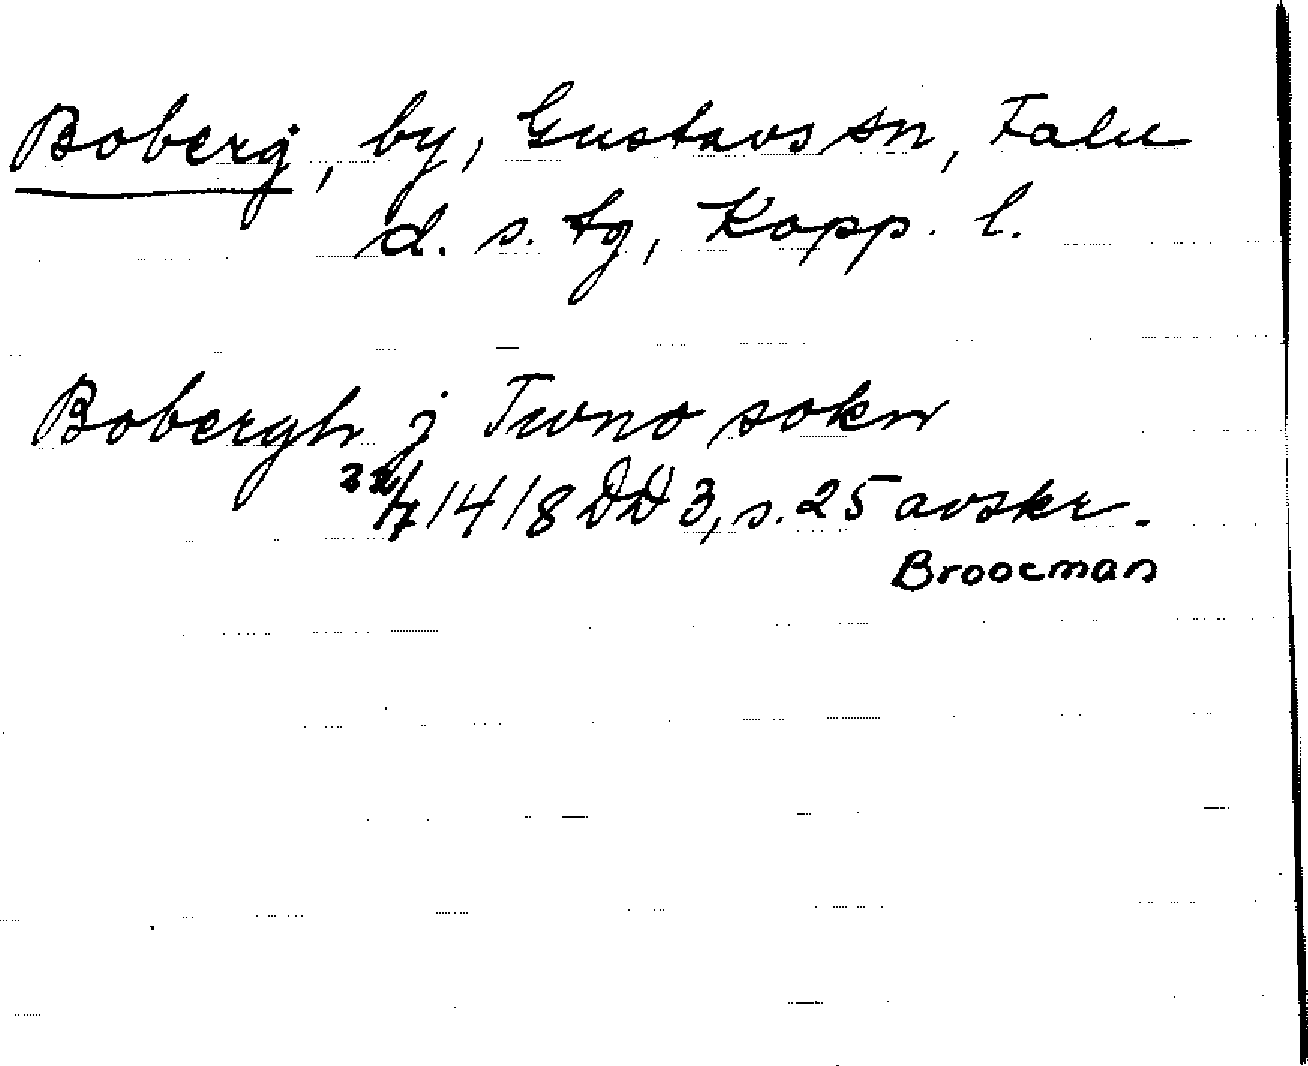 Boberg, by, Gustavs sn, Falu
d. s. tg, Kopp. l.
Bobergh j Twno sokn
22/7 1418 DD 3, s. 25 avskr.
Broocman